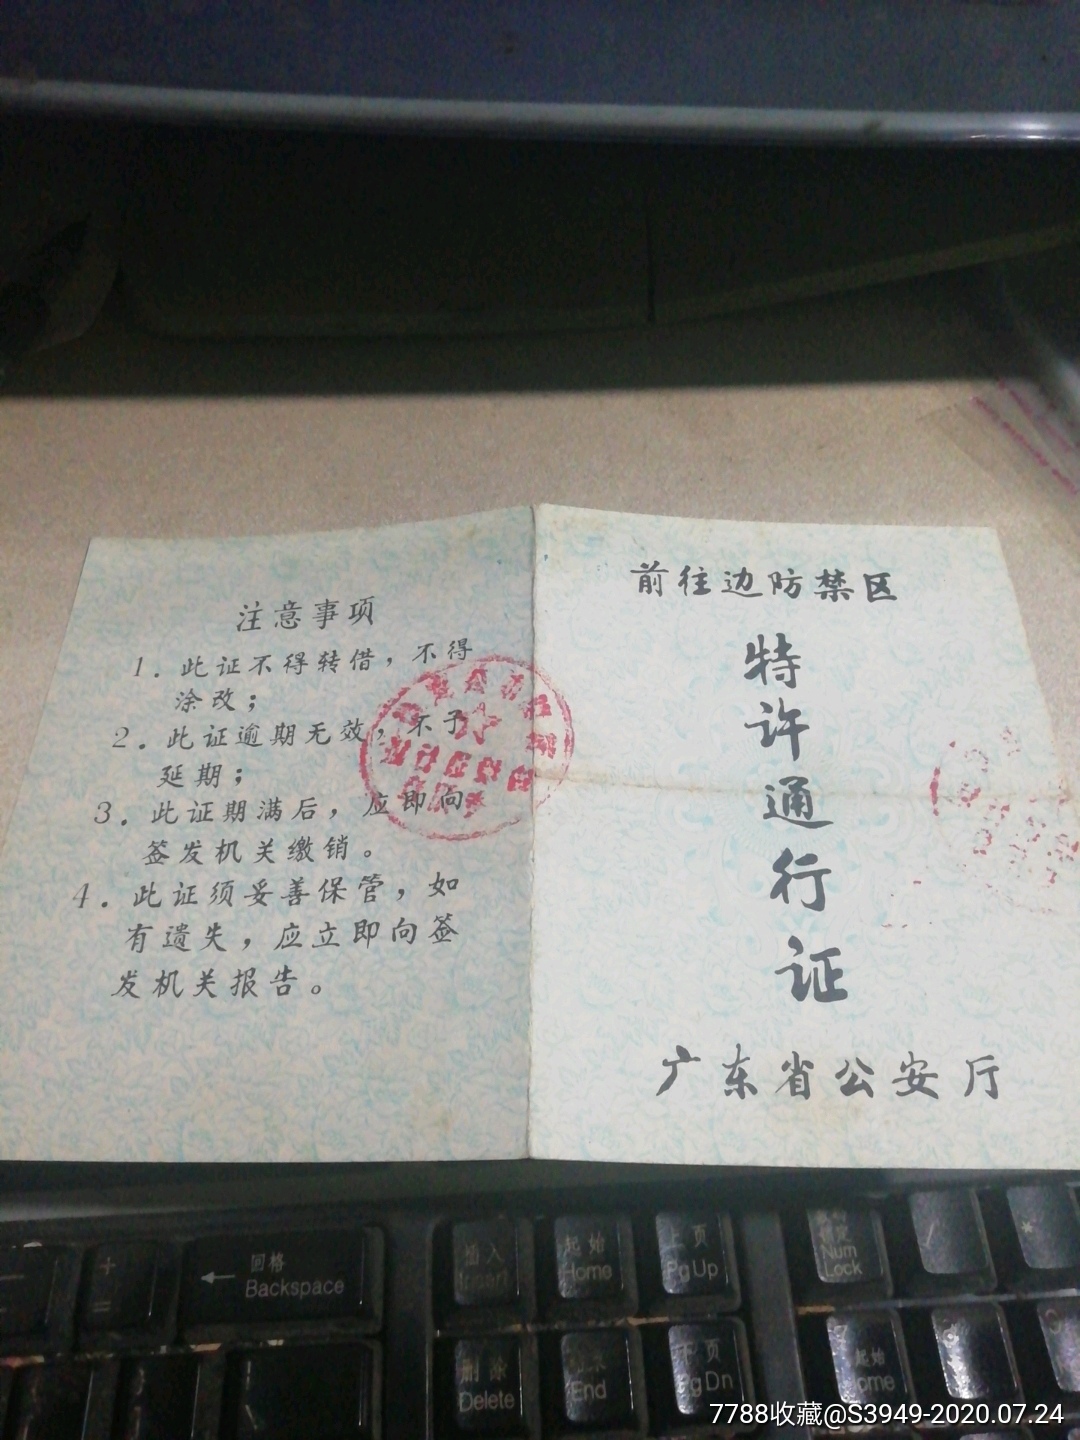 注意事项
1. 此证不得转借，不得
涂改；
2. 此证逾期无效，不予
延期；
3. 此证期满后，应即向
签发机关缴销。
4. 此证须妥善保管，如
有遗失，应立即向签
发机关报告。
前往边防禁区
特许通行证
广东省公安厅
+
=
回格
← Backspace
插入
Insert
起始
Home
上页
PgUp
Num
Lock
/
*
删除
Delete
End
下页
PgDn
起始
Home
7788收藏@S3949-2020.07.24